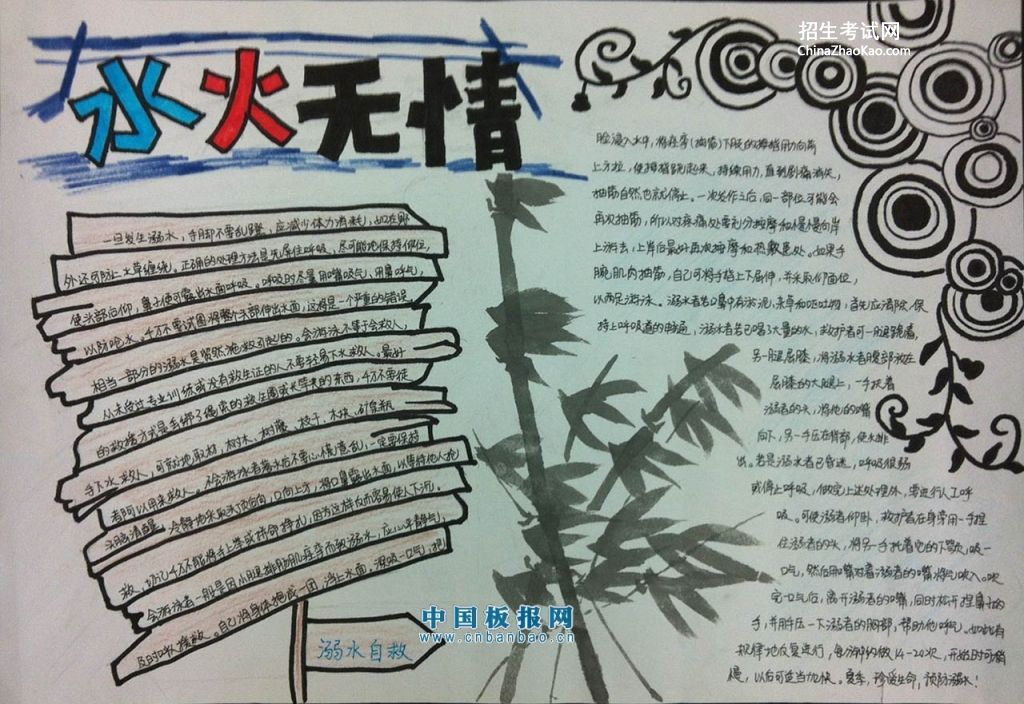 招生考试网
ChinaZhaoKao.com
水火无情
一旦发生溺水，手脚不要乱蹬，应减少体力消耗，如在野
外还可防止水草缠绕。正确的处理方法是先屏住呼吸，尽可能地保持仰位，
使头部后仰，鼻子便可露出水面呼吸。呼吸时尽量用嘴吸气，用鼻呼气，
以防呛水。千万不要试图将整个头部伸出水面，这将是一个严重的错误
相当一部分的溺水是贸然施救引起的。会游泳不等于会救人，
从未经过专业训练或没有救生证的人不要轻易下水救人。最好
的救援方式是丢绑了绳索的救生圈或长竿类的东西，千万不要徒
手下水救人，可就地取材，树木、树藤、枝干、木块、矿泉瓶
者阿以用来救人。不会游泳者落水后不要心慌意乱，一定要保持
头脑清醒。冷静地采取头顶向后，口向上方，将口鼻露出水面，以等待他人抢
救，切记千万不能将手上举或拼命挣扎，因为这样反而容易使人下沉。
会游泳者一般是因小腿腓肠肌痉挛而致溺水，应心平静气，
及时呼人援救。自己将身体抱成一团，浮上水面。深吸一口气，把
溺水自救
脸浸入水中，将痉挛(抽筋)下肢的拇指用力向前
上方拉，使拇指跷起来，持续用力，直到剧痛消失，
抽筋自然也就停止。一次发作之后，同一部位可能会
再次抽筋，所以对疼痛处要充分按摩和慢慢向岸
上游去，上岸后最好再次按摩和热敷患处。如果手
腕肌肉抽筋，自己可将手指上下屈伸，并采取仰面位，
以两足游泳。溺水者若口鼻中有淤泥、杂草和呕吐物，首先应清除，保
持上呼吸道的畅通，溺水者若已喝了大量的水，救护者可一腿跪着，
另一腿屈膝，将溺水者腹部放在
屈膝的大腿上，一手扶着
溺者的头，将他的嘴
向下，另一手压在背部，使水排
出。若是溺水者已昏迷，呼吸很弱
或停止呼吸，做完上述处理外，要进行人工呼
吸。可使溺者仰卧，救护者在身旁用一手捏
住溺者的鼻，将另一手托着他的下颚，吸一
口气，然后用嘴对着溺者的嘴将气吹入。吹
完一口气后，离开溺者的嘴，同时松开捏鼻子的
手，并用手压一下溺者的胸部，帮助他呼气。如此有
规律地反复进行，每分钟约做14-20次，开始时可稍
慢，以后可适当加快。夏季，珍爱生命，预防溺水！
中国板报网
www.cnbanbao.cn